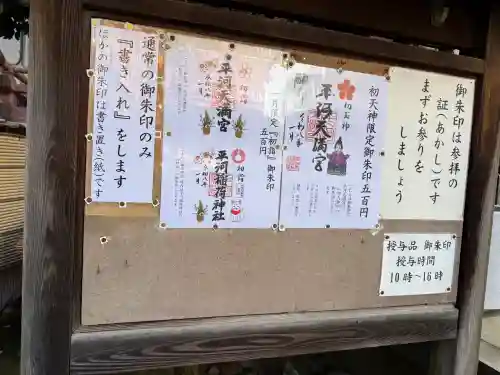 御朱印は参拝の
証(あかし)です
まずお参りを
しましょう
初天神限定御朱印五百円
初天神
平河天満宮
一月限定『初詣』御朱印
五百円
初詣
平河天満宮
初詣
平河稲荷神社
通常の御朱印のみ
『書き入れ』をします
ほかの御朱印は書き置き(紙)です
授与品 御朱印
授与時間
10時～16時